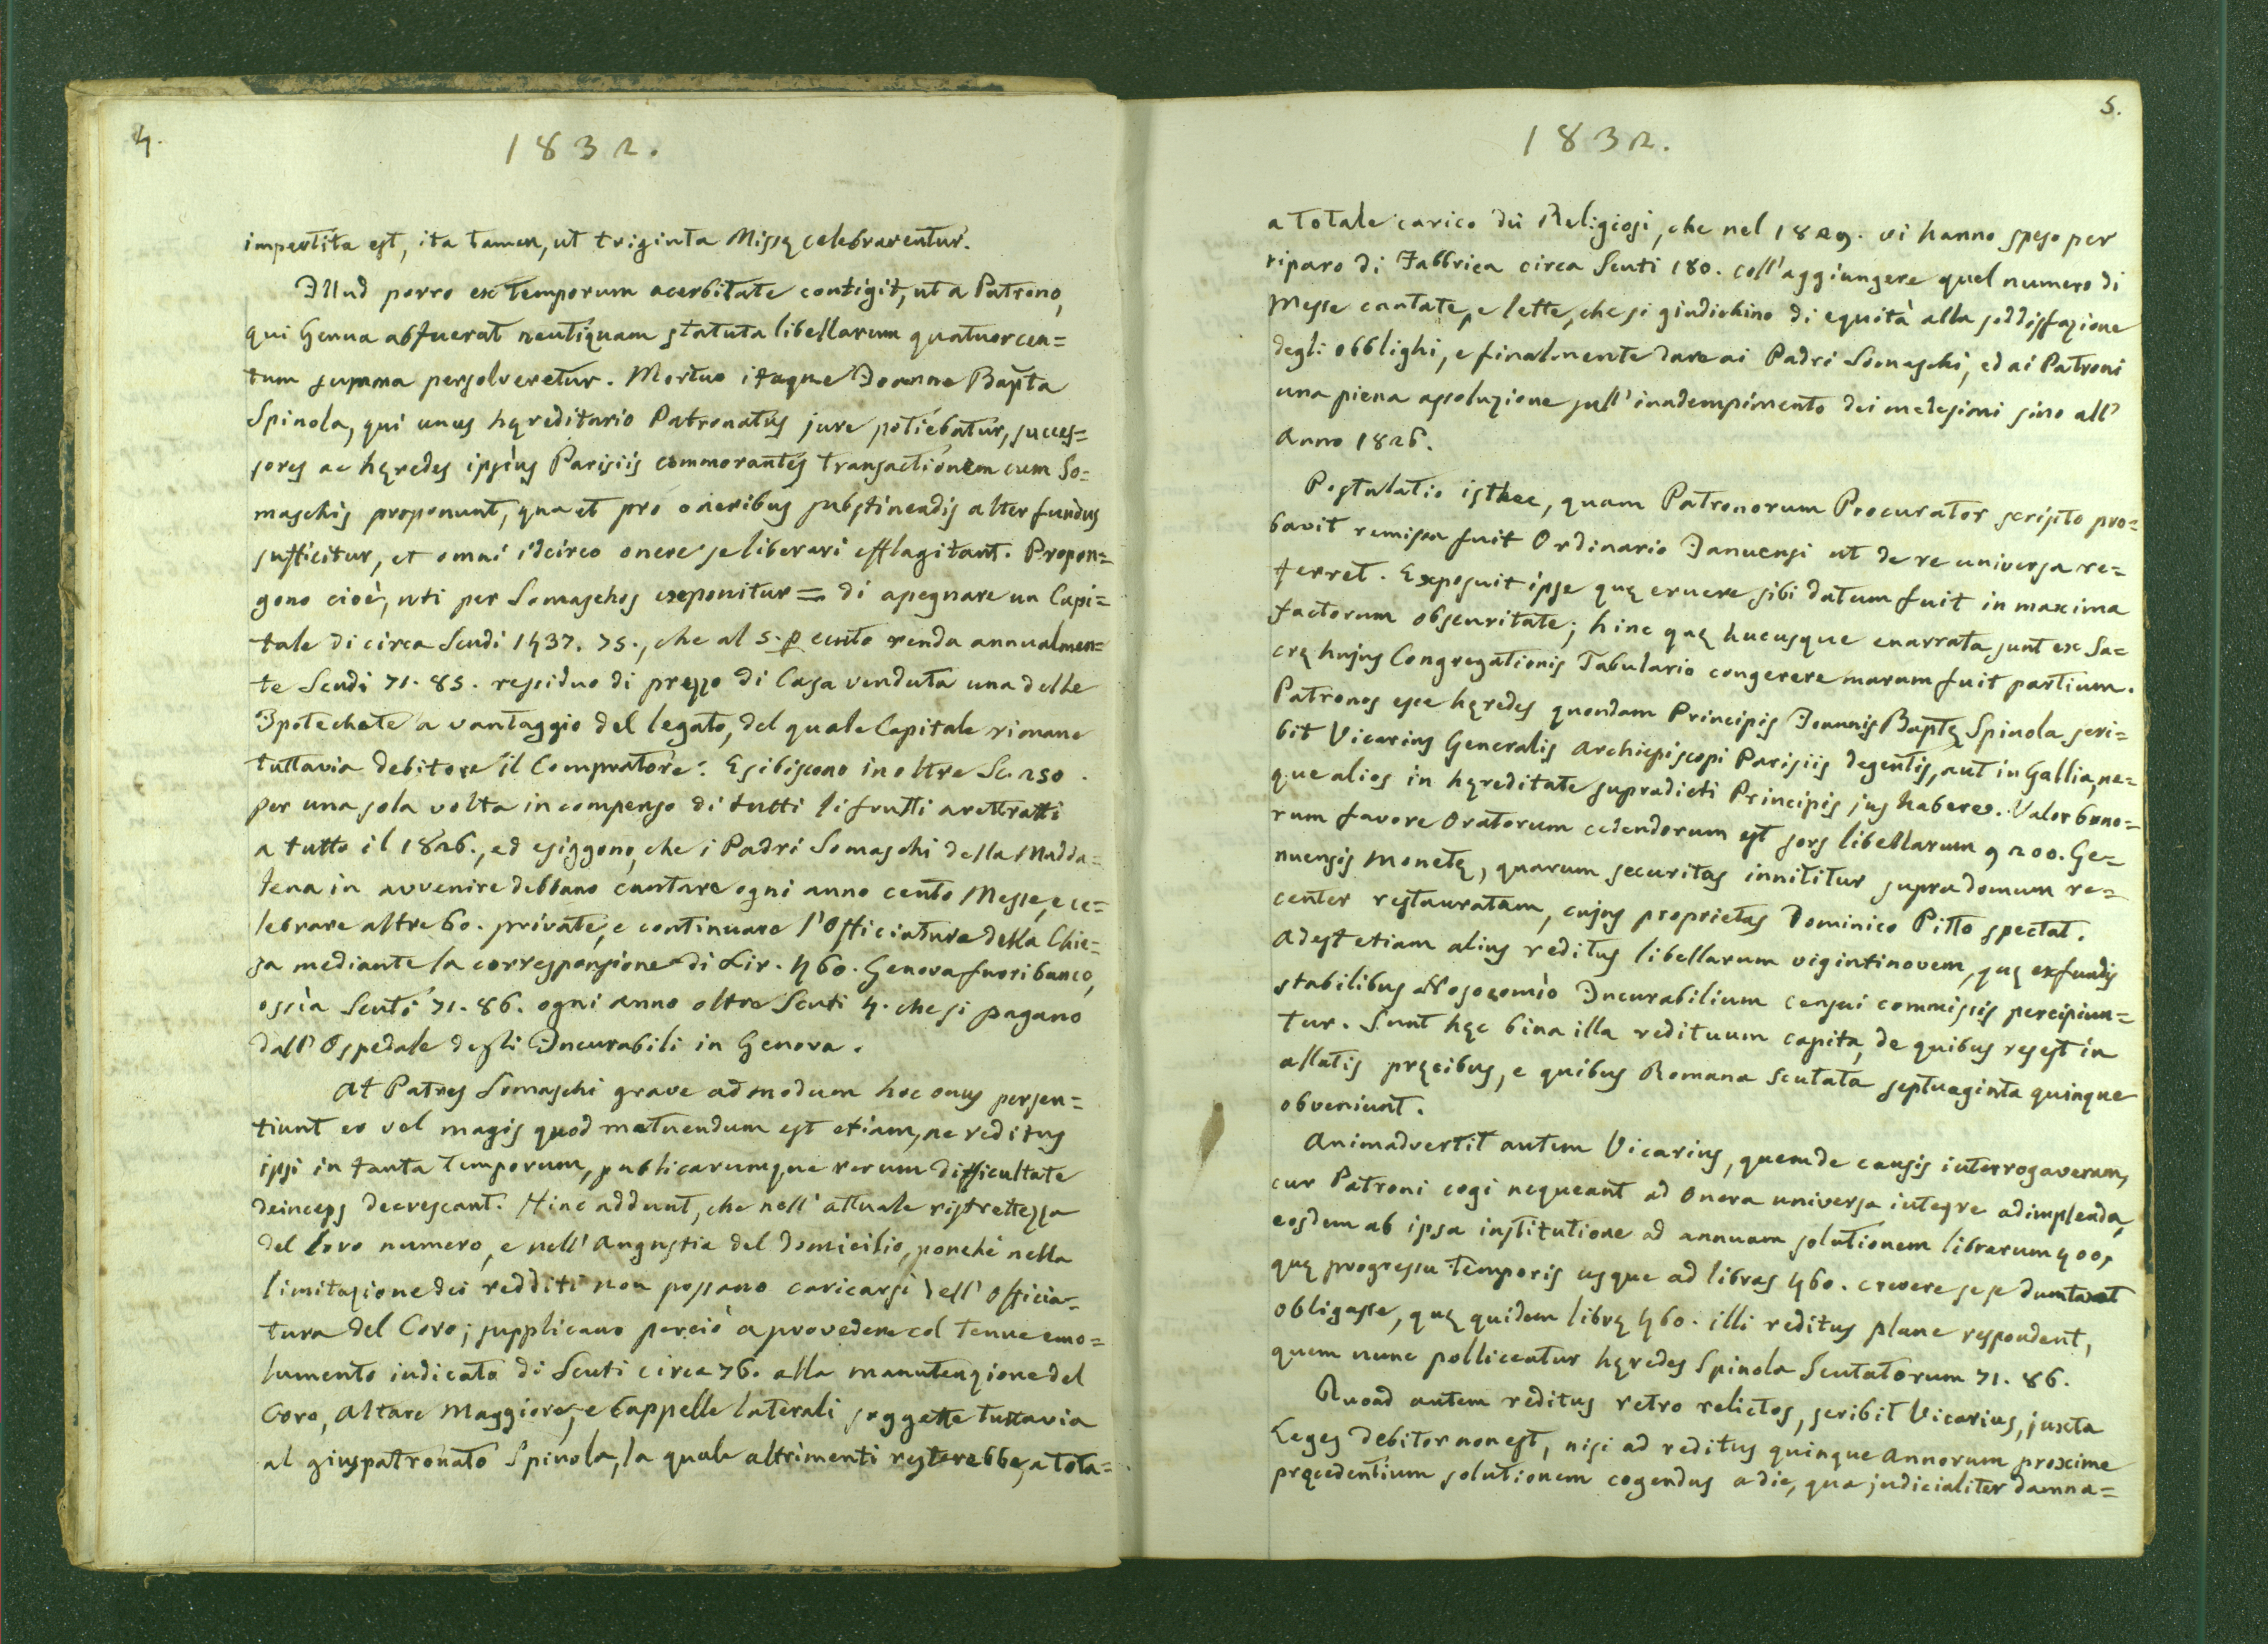 4.
1832.
impertita est, ita tamen, ut triginta Missę celebrarentur.
Illud porro ex temporum acerbitate contigit, ut a Patrono,
qui Genua abfuerat neutiquam statuta libellarum quatuorcen=
tum summa persolveretur. Mortuo itaque Joanne Bapta
Spinola, qui unus hęreditario Patronatus jure potiebatur, succes=
sores ac hęredes ipsius Parisiis commorantes transactionem cum So=
maschis proponunt, qua et pro oneribus substinendis alter fundus
sufficitur, et omni idcirco onere se liberari efflagitant. Propon=
gono cioè, uti per Somaschos exponitur = di apegnare un Capi=
tale di circa Scudi 1437. 75., che al 5. p cento renda annualmen=
te Scudi 71. 85. residuo di prezzo di Casa venduta una delle
Ipotechate a vantaggio del legato, del quale Capitale rimane
tuttavia debitore il Compratore. Esibiscono inoltre Sc. 250.
per una sola volta in compenso di tutti li frutti arettratti
a tutto il 1826., ed esiggono, che i Padri Somaschi della Madda=
lena in avvenire debbano cantare ogni anno cento Messe, e ce=
lebrare altre 60. private, e continuare l'Officiatura della Chie=
sa mediante la corresponsione di Lir. 460. Genova fuori banco,
ossia Scuti 71. 86. ogni anno oltre Scuti 4. che si pagano
dall' Ospedale degli Incurabili in Genova.
At Patres Somaschi grave admodum hoc onus persen=
tiunt eo vel magis quod metuendum est etiam, ne reditus
ipsi in tanta temporum, publicarumque rerum difficultate
deinceps decrescant. Hinc addunt, che nell' attuale ristrettezza
del loro numero, e nell' angustia del domicilio, ponchè nella
limitazione dei redditi non possano caricarsi dell' Officia=
tura del Coro; supplicano perciò a provedere col tenue emo=
lumento indicato di Scuti circa 76. alla manutenzione del
Coro, Altare Maggiore, e Cappelle laterali soggette tuttavia
al giuspatronato Spinola, la quale altrimenti resterebbe, a tota=
5.
1832.
a totale carico dei Religiosi, che nel 1829. vi hanno speso per
riparo di Fabbrica circa Scuti 180. coll'aggiungere quel numero di
Messe cantate, e lette, che si giudichino di equità alla soddisfazione
degli obblighi, e finalmente dare ai Padri Somaschi, ed ai Patroni
una piena assoluzione sull' inadempimento dei medesimi sino all'
Anno 1826.
Postulatio isthec, quam Patronorum Procurator scripto pro=
bavit remissa fuit Ordinario Januensi ut de re universa re=
ferret. Exposuit ipse quę eruere sibi datum fuit in maxima
factorum obscuritate; hinc quę hucusque enarrata sunt ex Sa=
crę hujus Congregationis Tabulario congerere marum fuit partium.
Patronos esse hęredes quondam Principis Joannis Baptę Spinola scri=
bit Vicarius Generalis Archiepiscopi Parisiis degentis, aut in Gallia, ne=
que alios in hęreditate supradicti Principis jus habere. Valor bono=
rum favore Oratorum cedendorum est sors libellarum 9200. Ge=
nuensis monetę, quarum securitas innititur supra domum re=
center restauratam, cujus proprietas Dominico Pitto spectat.
Adest etiam alius reditus libellarum vigintinovem, quę ex fundis
stabilibus Nosocomio Incurabilium censui commissis percipiun=
tur. Sunt hęc bina illa redituum capita, de quibus res est in
allatis pręcibus, e quibus Romana Scutata septuaginta quinque
obveniunt.
Animadvertit autem Vicarius, quem de causis interrogaveram,
cur Patroni cogi nequeant ad onera universa integre adimplenda,
eosdem ab ipsa institutione ad annuam solutionem librarum 400,
quę progressu temporis usque ad libras 460. crevere se se dumtaxat
obligasse, quę quidem librę 460. illi reditus plane respondent,
quem nunc pollicentur hęredes Spinola Scutatorum 71. 86.
Quoad autem reditus retro relictos, scribit Vicarius, juxta
Leges debitor non est, nisi ad reditus quinque Annorum proxime
pręcedentium solutionem cogendus a die, qua judicialiter damna=